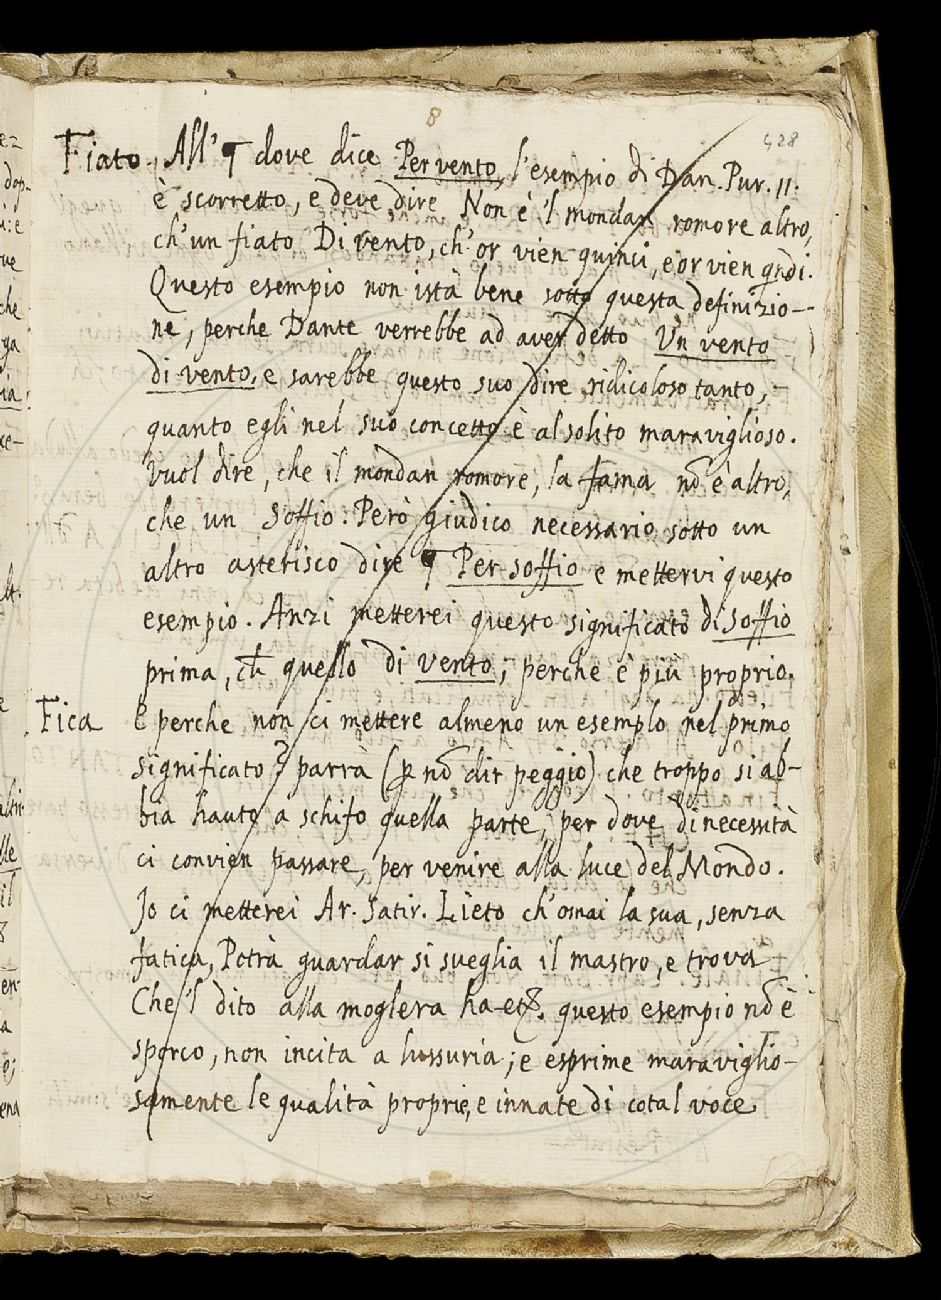 8
428
Fiato. All' ¶ dove dice Per vento, l'esempio di Dan. Pur. 11.
è scorretto, e deve dire Non è 'l mondan romore altro,
ch' un fiato Di vento, ch' or vien quinci, e or vien qndi.
Questo esempio non istà bene sotto questa definizio-
ne, perche Dante verrebbe ad aver detto Un vento
di vento, e sarebbe questo suo dire ridicoloso tanto,
quanto egli nel suo concetto è al solito maraviglioso.
Vuol dire, che il mondan romore, la fama nō è altro,
che un soffio. Però giudico necessario sotto un
altro asterisco dire ¶ Per soffio e mettervi questo
esempio. Anzi metterei questo significato di soffio
prima, ch quello di vento; perche è più proprio.
Fica E perche non ci mettere almeno un esemplo nel primo
significato? parrà (p nō dir peggio) che troppo si ab-
bia hauto a schifo quella parte, per dove di necessità
ci convien passare, per venire alla luce del Mondo.
Jo ci metterei Ar. Satir. Lieto ch' omai la sua, senza
fatica, Potrà guardar si sveglia il mastro, e trova
Che 'l dito alla moglera ha etc. questo esempio nō è
sporco, non incita a lussuria; e esprime maraviglio-
samente le qualità proprie, e innate di cotal voce